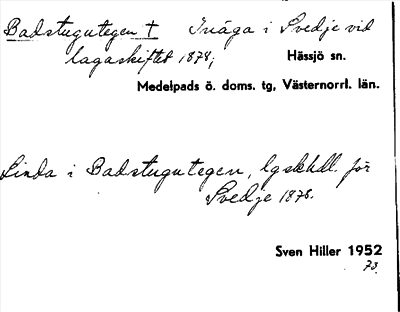 Badstugutegen † Inäga i Svedje vid
lagaskiftet 1878;
Hässjö sn.
Medelpads ö. doms. tg, Västernorrl. län.
Linda i Badstugutegen, lgskhdl. för
Svedje 1878.
Sven Hiller 1952
73.